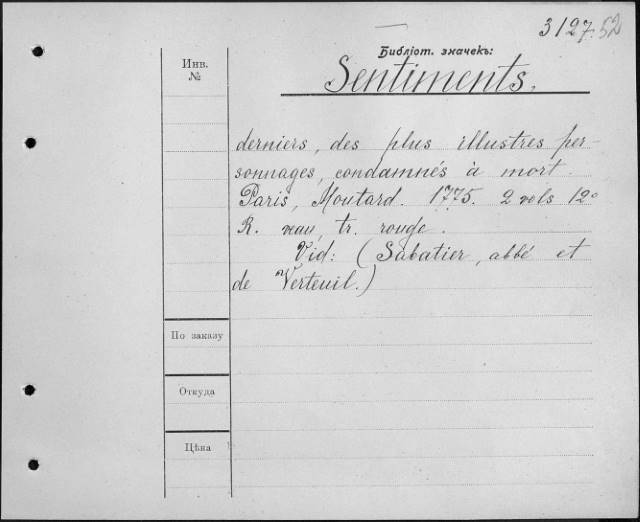 3127.52
Библіот. значекъ:
Sentiments.
Инв.
№
derniers, des plus illustres per-
sonnages, condamnés à mort.
Paris, Moutard. 1775. 2 vols 12°
R. veau, tr. rouge.
Vid: (Sabatier, abbé et
de Verteuil.)
По заказу
Откуда
Цѣна